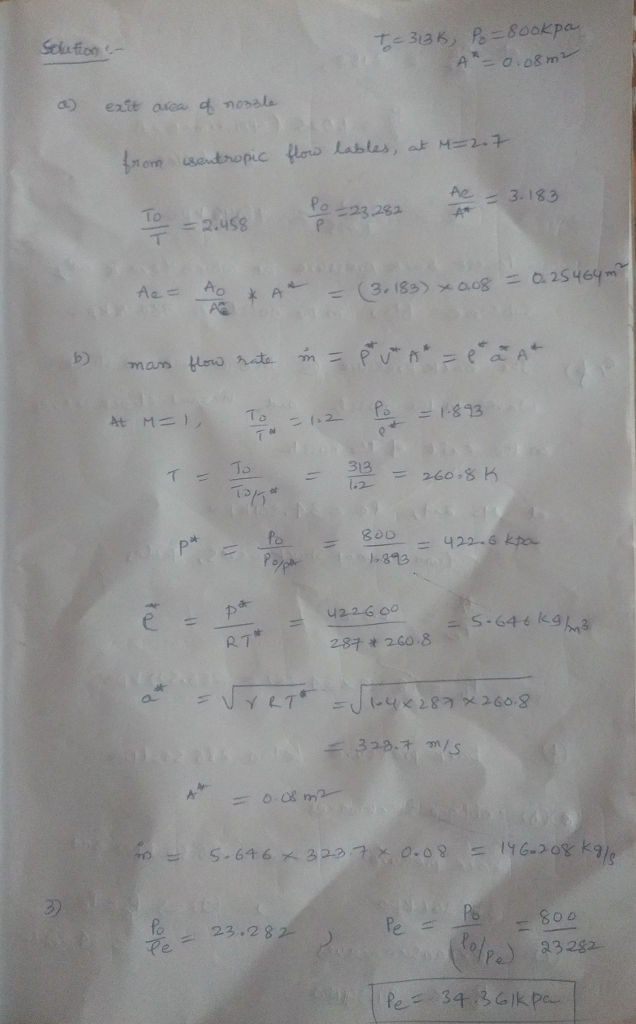 Solution :-
T₀ = 313K, P₀ = 800kpa
A* = 0.08 m²
a) exit area of nozzle
from isentropic flow tables, at M=2.7
T₀/T = 2.458 P₀/P = 23.282 Ae/A* = 3.183
Ae = A₀/A* * A* = (3.183) × 0.08 = 0.25464 m²
b) mass flow rate ṁ = ρ* V* A* = ρ* a* A*
At M=1, T₀/T* = 1.2 P₀/P* = 1.893
T = T₀/(T₀/T*) = 313/1.2 = 260.8 K
P* = P₀/(P₀/P*) = 800/1.893 = 422.6 kpa
ρ* = P*/RT* = 422600/(287 * 260.8) = 5.646 kg/m3
a* = √γRT* = √1.4×287×260.8
= 323.7 m/s
A* = 0.08 m²
ṁ = 5.646 × 323.7 × 0.08 = 146.208 kg/s
3) P₀/Pe = 23.282 , Pe = P₀/(P₀/Pe) = 800/23282
Pe = 34.361kpa